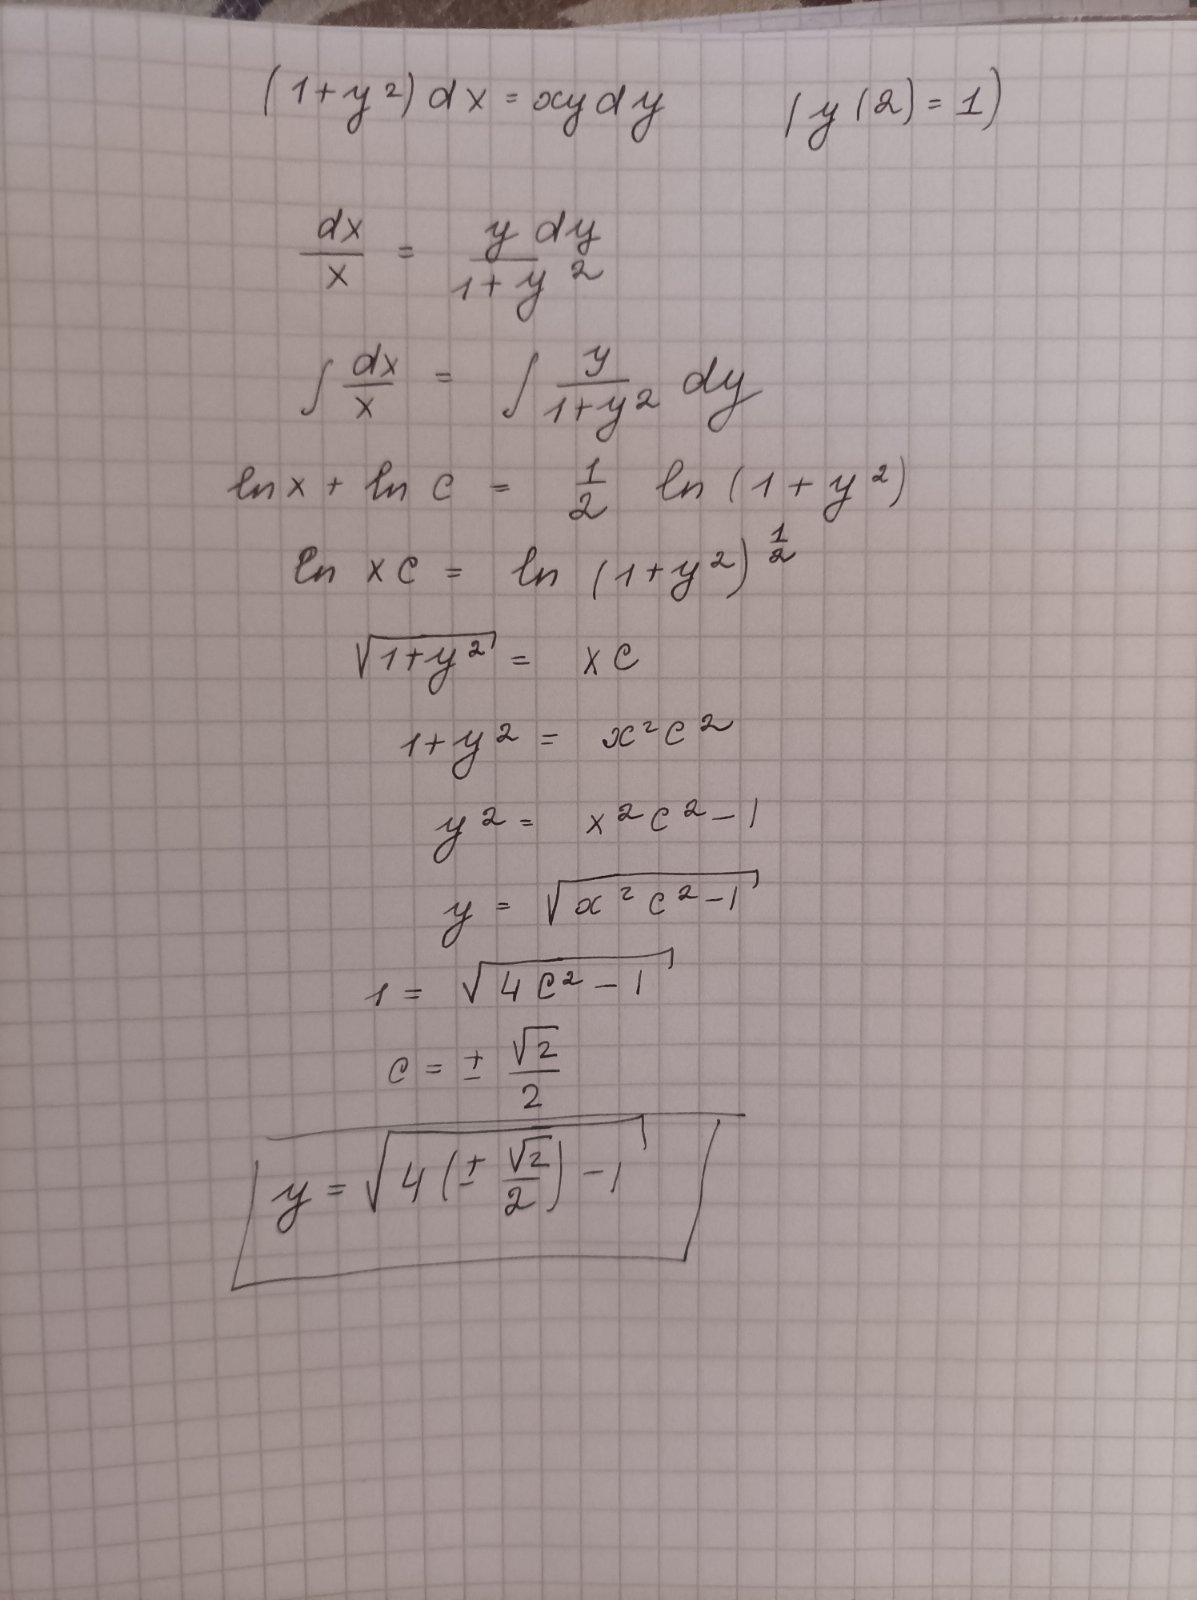 (1+y²) dx = xy dy (y(2) = 1)
dx/x = y dy/(1+y²)
∫ dx/x = ∫ y/(1+y²) dy
ln x + ln c = 1/2 ln (1+y²)
ln xc = ln (1+y²)^(1/2)
√(1+y²) = xc
1+y² = x²c²
y² = x²c² - 1
y = √(x²c² - 1)
1 = √(4c² - 1)
c = ± √2/2
y = √(4(± √2/2) - 1)